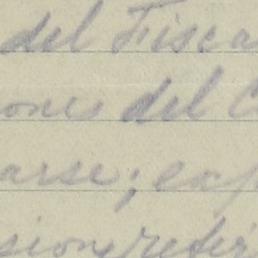 del Fisca
ones del C
arse; exp
siones refer